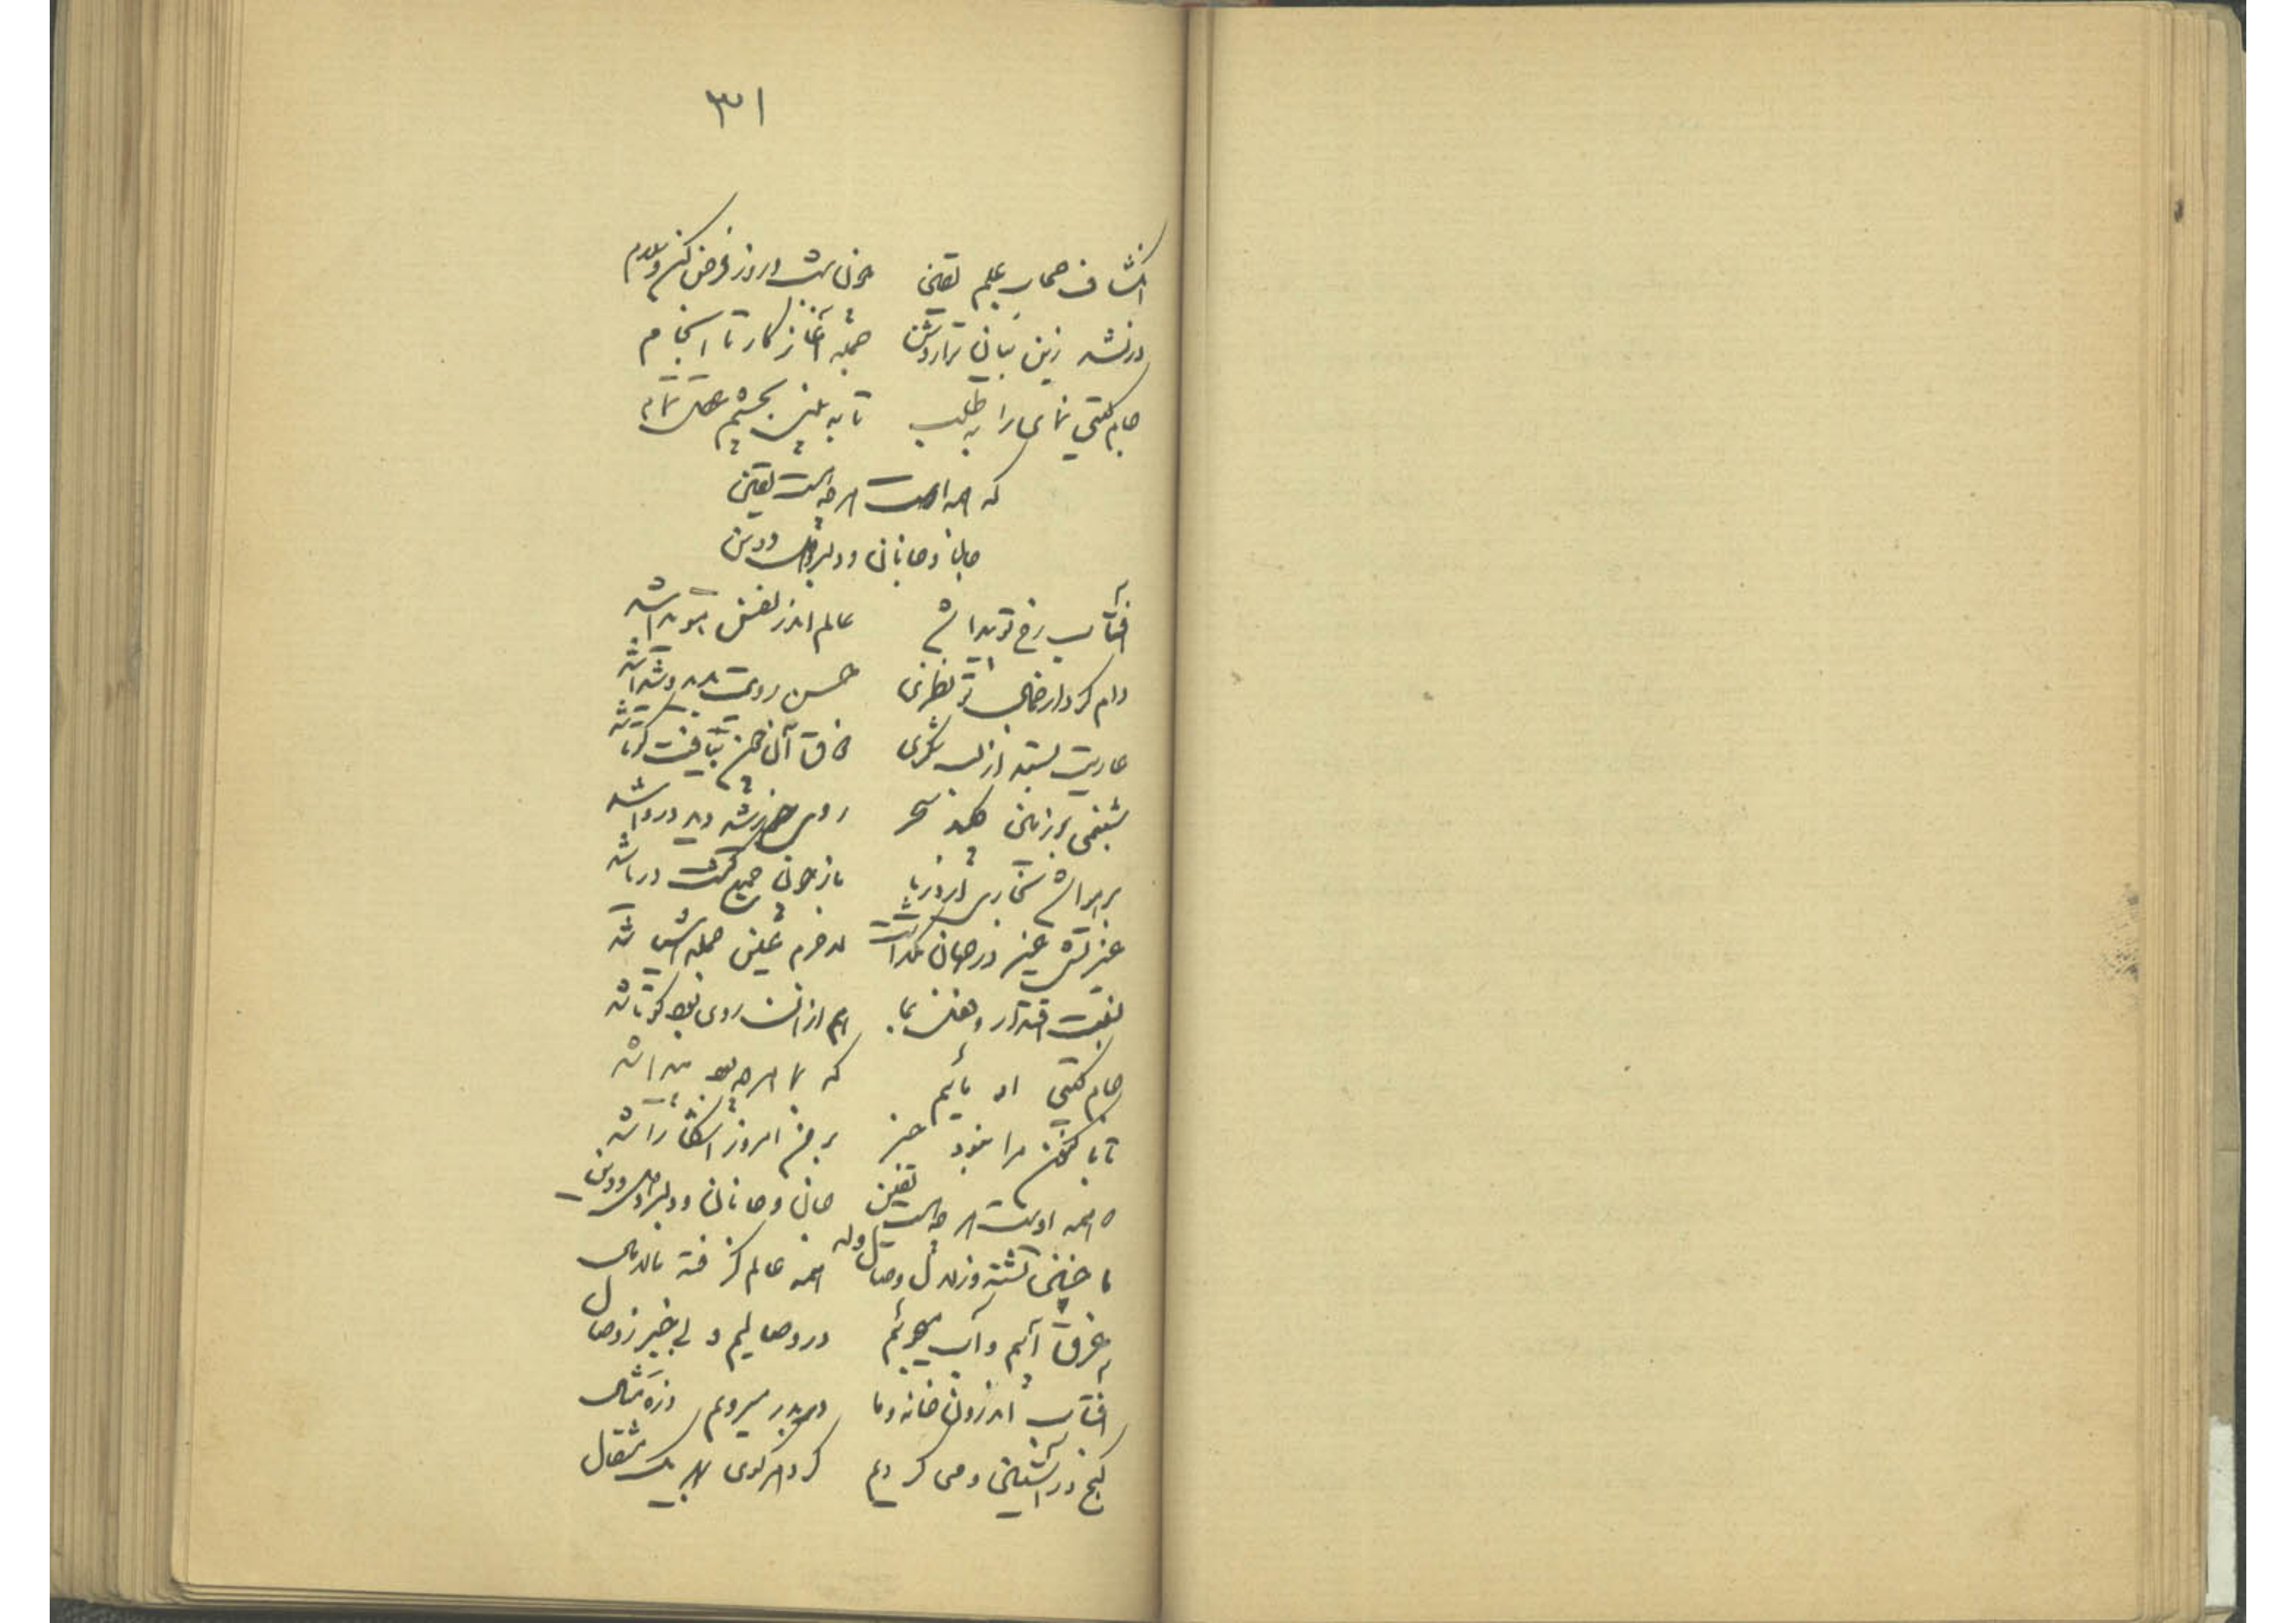 ۳۱
آفتاب حجاب علم یقین چون شب و روز فرض کن و ظلام
ورنشد زین بیان ترا روشن جمله آغاز کار تا انجام
جام گیتی نمای را به طلب تا به بینی بچشم عقل تمام
که همه اوست هر چه هست یقین
جان و جانان و دلبر و دل و دین
آفتاب رخ تو پیدا شد عالم اندر نفس هویدا شد
وام کرد از جمال تو نظری حسن رویت بدید و شیدا شد
عاریت بستد از لبت شکری ذوق آن چون بیافت گویا شد
شبنمی بر زمین چکید سحر روی خورشید دید و دروا شد
بر هوا شد بخاری از دریا باز چون جمع گشت دریا شد
غیرتش غیر در جهان نگذاشت لاجرم عین جمله اشیا شد
نسبت اقتدار و فعل بما هم از آن روی بود کو ما شد
جام گیتی او مائیم که بما هر چه بود پیدا شد
تا به اکنون مرا نبود خبر بر من امروز آشکارا شد
که همه اوست هر چه هست یقین جان و جانان و دلبر و دل و دین
وله
ما چنین تشنه و زلال وصال همه عالم گرفته مالامال
غرق آبیم و آب میجوئیم در وصالیم و بی خبر ز وصال
آفتاب اندرون خانه و ما در بدر میرویم ذره مثال
گنج در آستین و می گردیم گرد هر کوی بهر یک مثقال